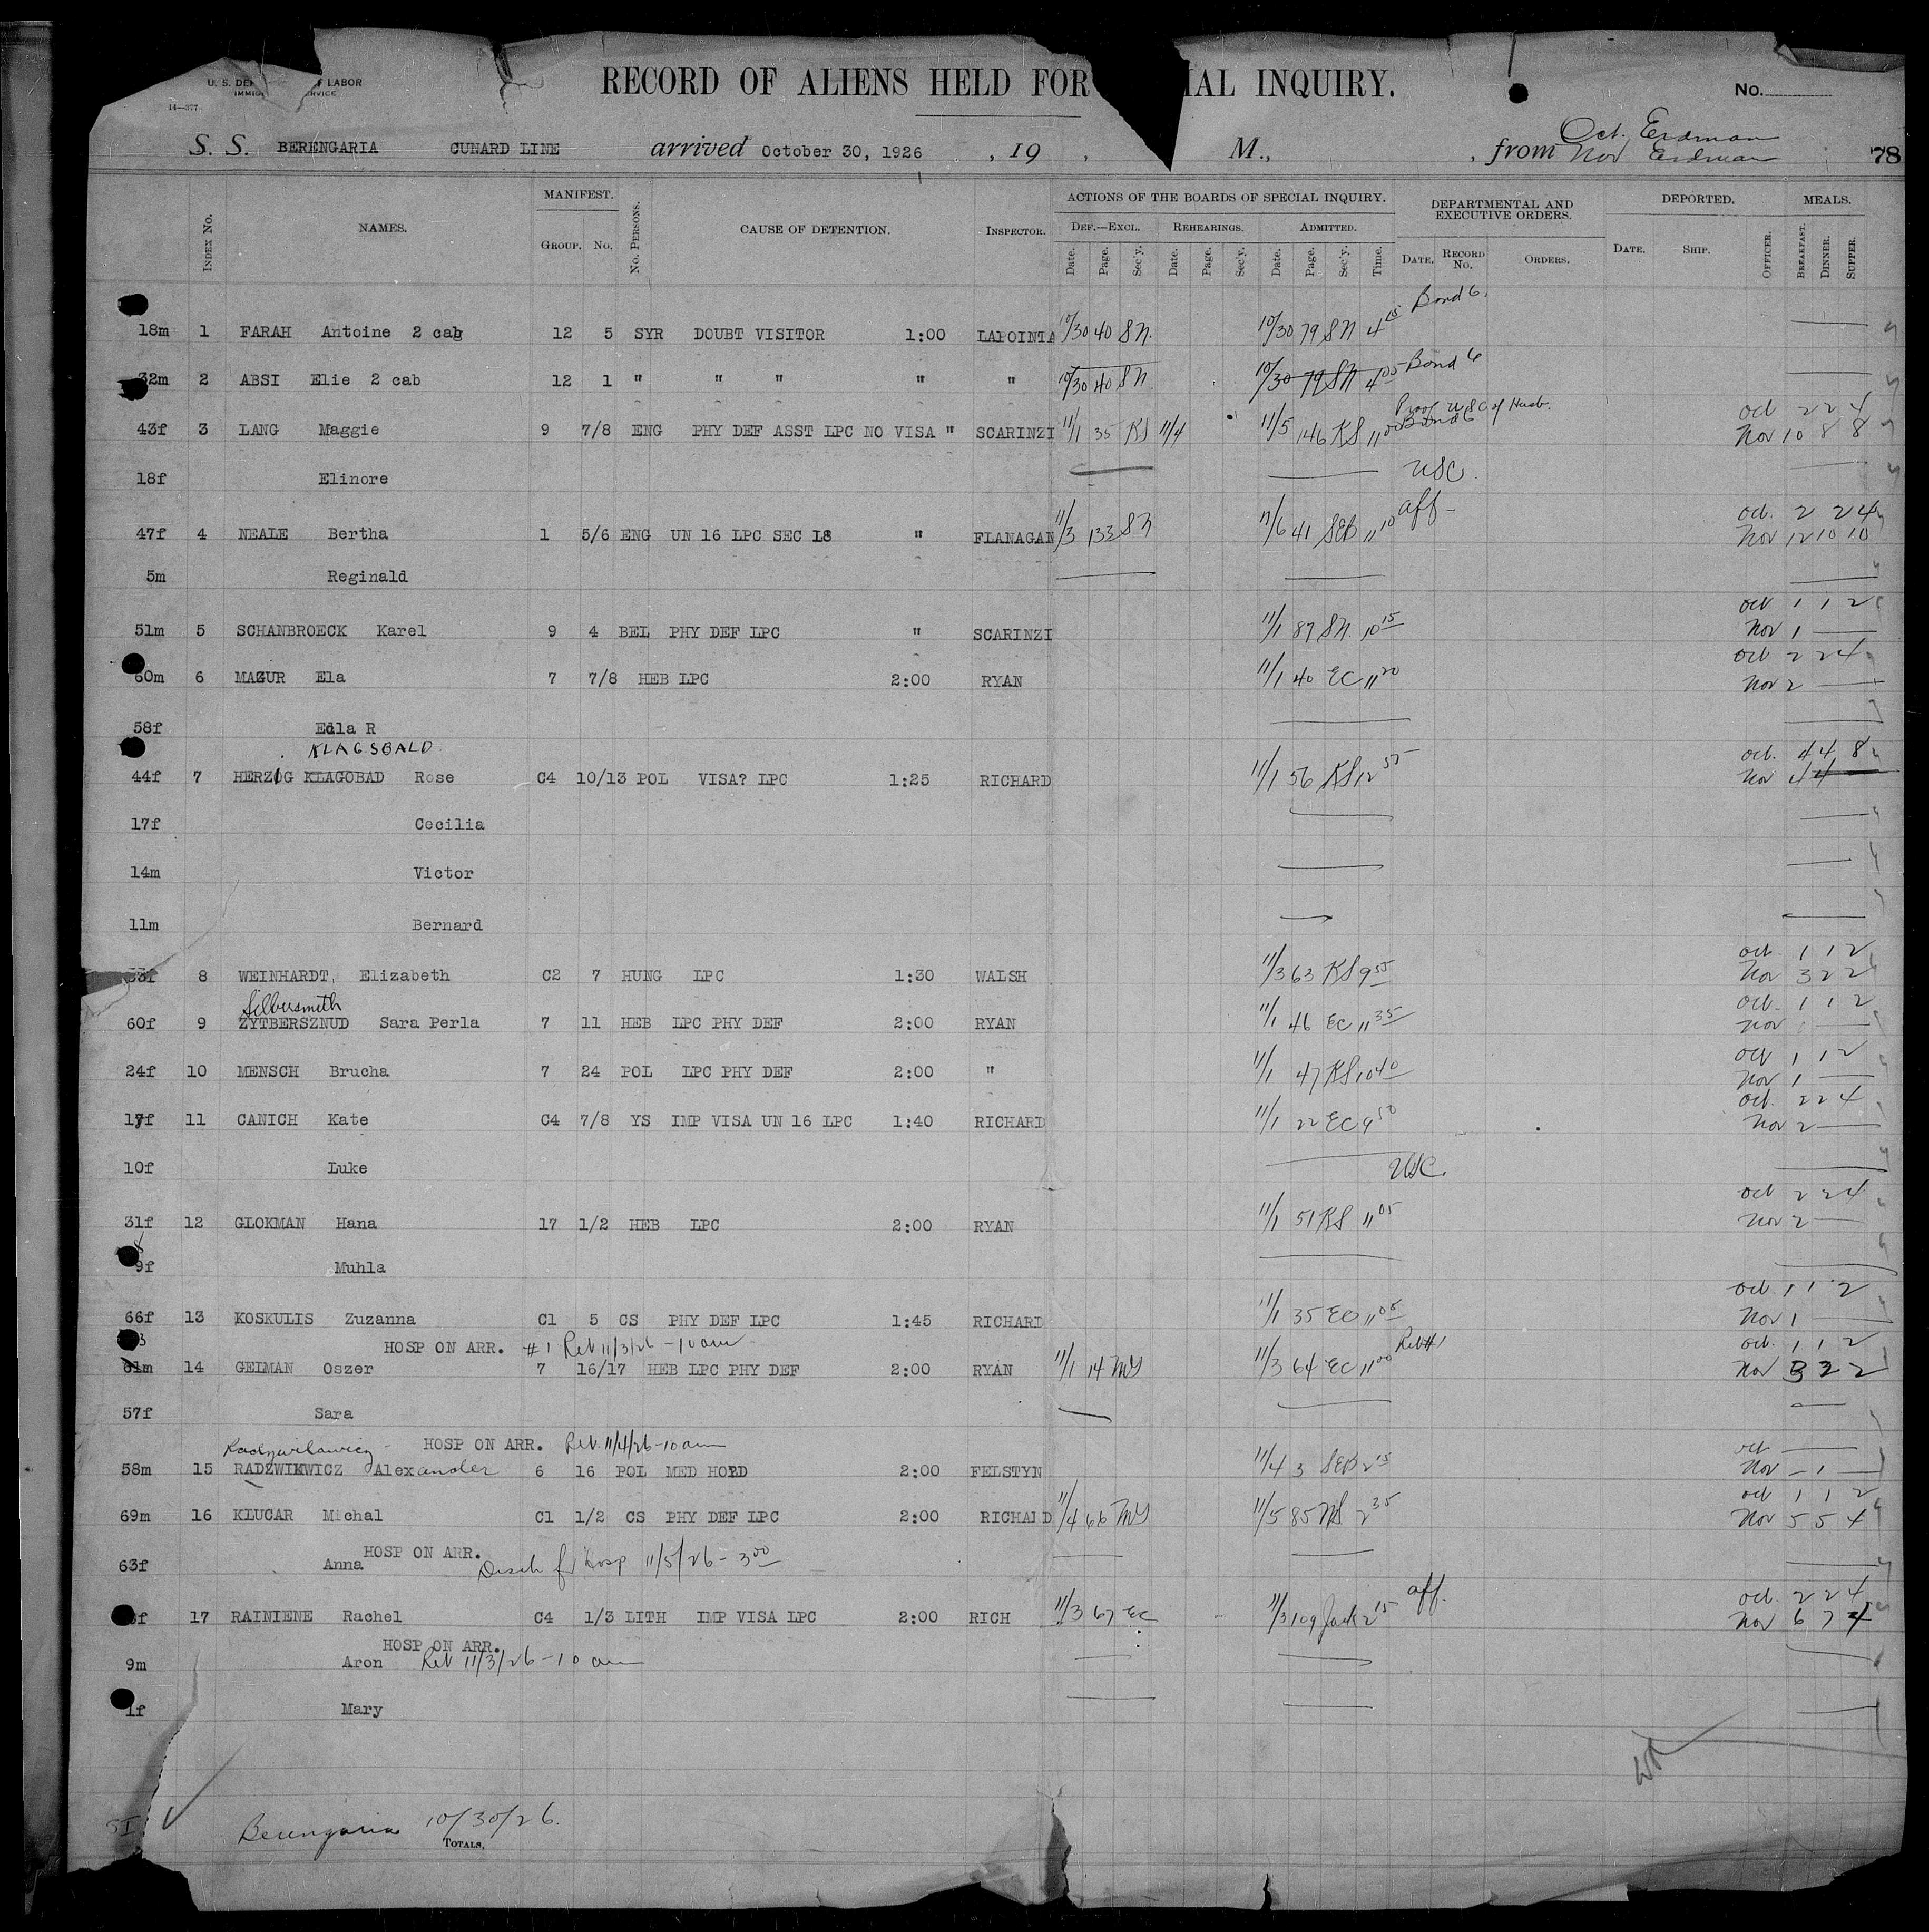 U. S. DEP LABOR
IMMIG RVICE
14—377
RECORD OF ALIENS HELD FOR IAL INQUIRY.
No.
S. S. BERENGARIA CUNARD LINE arrived October 30, 1926 , 19 , M., , from Oct. Erdman
Nov Erdman
78
INDEX No. NAMES. MANIFEST. GROUP. No. No. PERSONS. CAUSE OF DETENTION. INSPECTOR. ACTIONS OF THE BOARDS OF SPECIAL INQUIRY. DEF.—EXCL. Date. Page. Sec'y. REHEARINGS. Date. Page. Sec'y. ADMITTED. Date. Page. Sec'y. Time. DEPARTMENTAL AND EXECUTIVE ORDERS. DATE. RECORD No. ORDERS. DEPORTED. DATE. SHIP. OFFICER. MEALS. BREAKFAST. DINNER. SUPPER.
Bond 6.
18m 1 FARAH Antoine 2 cab 12 5 SYR DOUBT VISITOR 1:00 LAPOINTA 10/30 40 SN. 10/30 79 SN 4 15
32m 2 ABSI Elie 2 cab 12 1 " " " " " 10/30 40 SN. 10/30 79 SN 4 05 Bond 6
Proof USC of Husb. Oct 2 2 4
43f 3 LANG Maggie 9 7/8 ENG PHY DEF ASST LPC NO VISA " SCARINZI 11/1 35 KS 11/4 11/5 146 KS 11 00 Bond 6 Nov 10 8 8
18f Elinore USC.
Oct. 2 2 4
47f 4 NEALE Bertha 1 5/6 ENG UN 16 LPC SEC 18 " FLANAGAN 11/3 133 SN 11/6 41 SEB 11 10 aff- Nov 12 10 10
5m Reginald
Oct 1 1 2
51m 5 SCHANBROECK Karel 9 4 BEL PHY DEF LPC " SCARINZI 11/1 87 SN. 10 15 Nov 1
Oct 2 2 4
60m 6 MAZUR Ela 7 7/8 HEB LPC 2:00 RYAN 11/1 40 EC 11 20 Nov 2
58f Edla R
KLAGSBALD. Oct. 4 4 8
44f 7 HERZOG KLAGOBAD Rose C4 10/13 POL VISA? LPC 1:25 RICHARD 11/1 56 KS 12 55 Nov 4 4
17f Cecilia
14m Victor
11m Bernard
Oct. 1 1 2
33f 8 WEINHARDT, Elizabeth C2 7 HUNG LPC 1:30 WALSH 11/3 63 KS 9 55 Nov 3 2 2
Silbersmith Oct. 1 1 2
60f 9 ZYTBERSZNUD Sara Perla 7 11 HEB LPC PHY DEF 2:00 RYAN 11/1 46 EC 11 35 Nov 1
Oct 1 1 2
24f 10 MENSCH Brucha 7 24 POL LPC PHY DEF 2:00 " 11/1 47 KS 10 40 Nov 1
Oct. 2 2 4
17f 11 CANICH Kate C4 7/8 YS IMP VISA UN 16 LPC 1:40 RICHARD 11/1 22 EC 9 50 Nov 2
10f Luke USC.
Oct 2 2 4
31f 12 GLOKMAN Hana 17 1/2 HEB LPC 2:00 RYAN 11/1 51 KS 11 05 Nov 2
9f Muhla
Oct. 1 1 2
66f 13 KOSKULIS Zuzanna C1 5 CS PHY DEF LPC 1:45 RICHARD 11/1 35 EC 11 05 Nov 1
HOSP ON ARR. #1 Ret 11/3/26 - 10 am Ret #1 Oct. 1 1 2
61m 14 GELMAN Oszer 7 16/17 HEB LPC PHY DEF 2:00 RYAN 11/1 14 MY 11/3 64 EC 11 00 Nov 3 2 2
57f Sara
Radzwilawicz - HOSP ON ARR. Ret. 11/4/26 - 10 am Oct
58m 15 RADZWIKWICZ Alexander 6 16 POL MED HOLD 2:00 FELSTYN 11/4 3 SEB 2 15 Nov - 1
Oct 1 1 2
69m 16 KLUCAR Michal C1 1/2 CS PHY DEF LPC 2:00 RICHARD 11/4 66 MY 11/5 85 2 35 Nov 5 5 4
HOSP ON ARR.
63f Anna Disch fr Hosp 11/5/26 - 3 00
aff. Oct. 2 2 4
f 17 RAINIENE Rachel C4 1/3 LITH IMP VISA LPC 2:00 RICH 11/3 67 EC 11/3 109 Jack 2 15 Nov 6 7 4
HOSP ON ARR.
9m Aron Ret 11/3/26 - 10 am
1f Mary
SI Berengaria 10/30/26.
TOTALS,